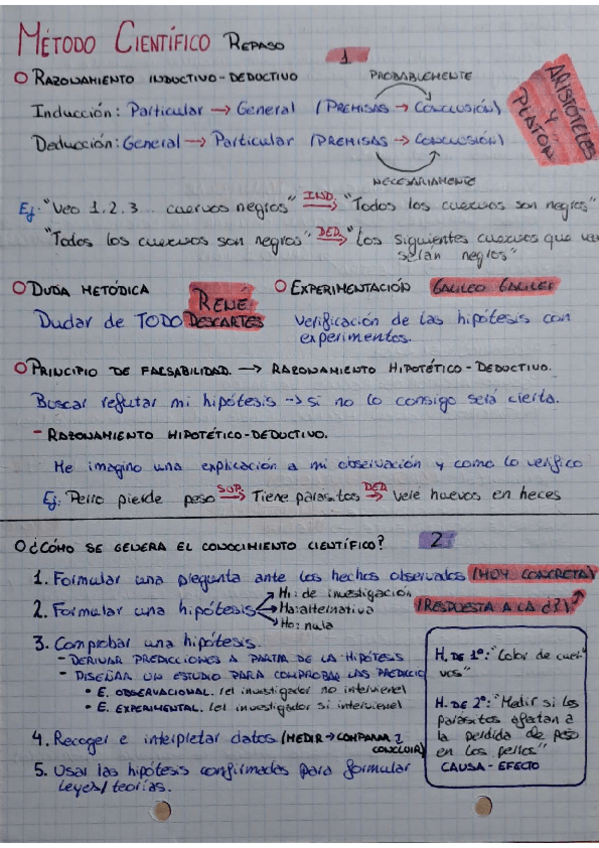 MÉTODO CIENTÍFICO REPASO
1
O RAZONAMIENTO INDUCTIVO-DEDUCTIVO
PROBABLEMENTE
Inducción: Particular → General (PREMISAS → CONCLUSIÓN)
ARISTÓTELES Y PLATÓN
Deducción: General → Particular (PREMISAS → CONCLUSIÓN)
NECESARIAMENTE
Ej: "Veo 1.2.3... cuervos negros" IND.→ "Todos los cuervos son negros"
"Todos los cuervos son negros" DED.→ "Los siguientes cuervos que
serán negros"
O DUDA METÓDICA
RENÉ DESCARTES
Dudar de TODO
O EXPERIMENTACIÓN GALILEO GALILEI
Verificación de las hipótesis con
experimentos.
O PRINCIPIO DE FALSABILIDAD. → RAZONAMIENTO HIPOTÉTICO-DEDUCTIVO.
Buscar refutar mi hipótesis → si no lo consigo será cierta.
- RAZONAMIENTO HIPOTÉTICO-DEDUCTIVO.
Me imagino una explicación a mi observación y como lo verifico
Ej: Perro pierde peso SUP.→ Tiene parásitos DED.→ Veré huevos en heces
O ¿CÓMO SE GENERA EL CONOCIMIENTO CIENTÍFICO? 2
1. Formular una pregunta ante los hechos observados (MUY CONCRETA)
2. Formular una hipótesis (RESPUESTA A LA ¿?)
H1: de investigación
Ha: alternativa
H0: nula
3. Comprobar una hipótesis.
- DERIVAR PREDICCIONES A PARTIR DE LA HIPÓTESIS
- DISEÑAR UN ESTUDIO PARA COMPROBAR LAS PREDICCIO
• E. OBSERVACIONAL. (el investigador no interviene)
• E. EXPERIMENTAL. (el investigador si interviene)
4. Recoger e interpretar datos (MEDIR → COMPARAR Y
CONCLUIR)
5. Usar las hipótesis confirmadas para formular
leyes/teorías.
H. DE 1º: "Color de cuer-
vos"
H. DE 2º: "Medir si los
parásitos afectan a
la perdida de peso
en los perros"
CAUSA - EFECTO